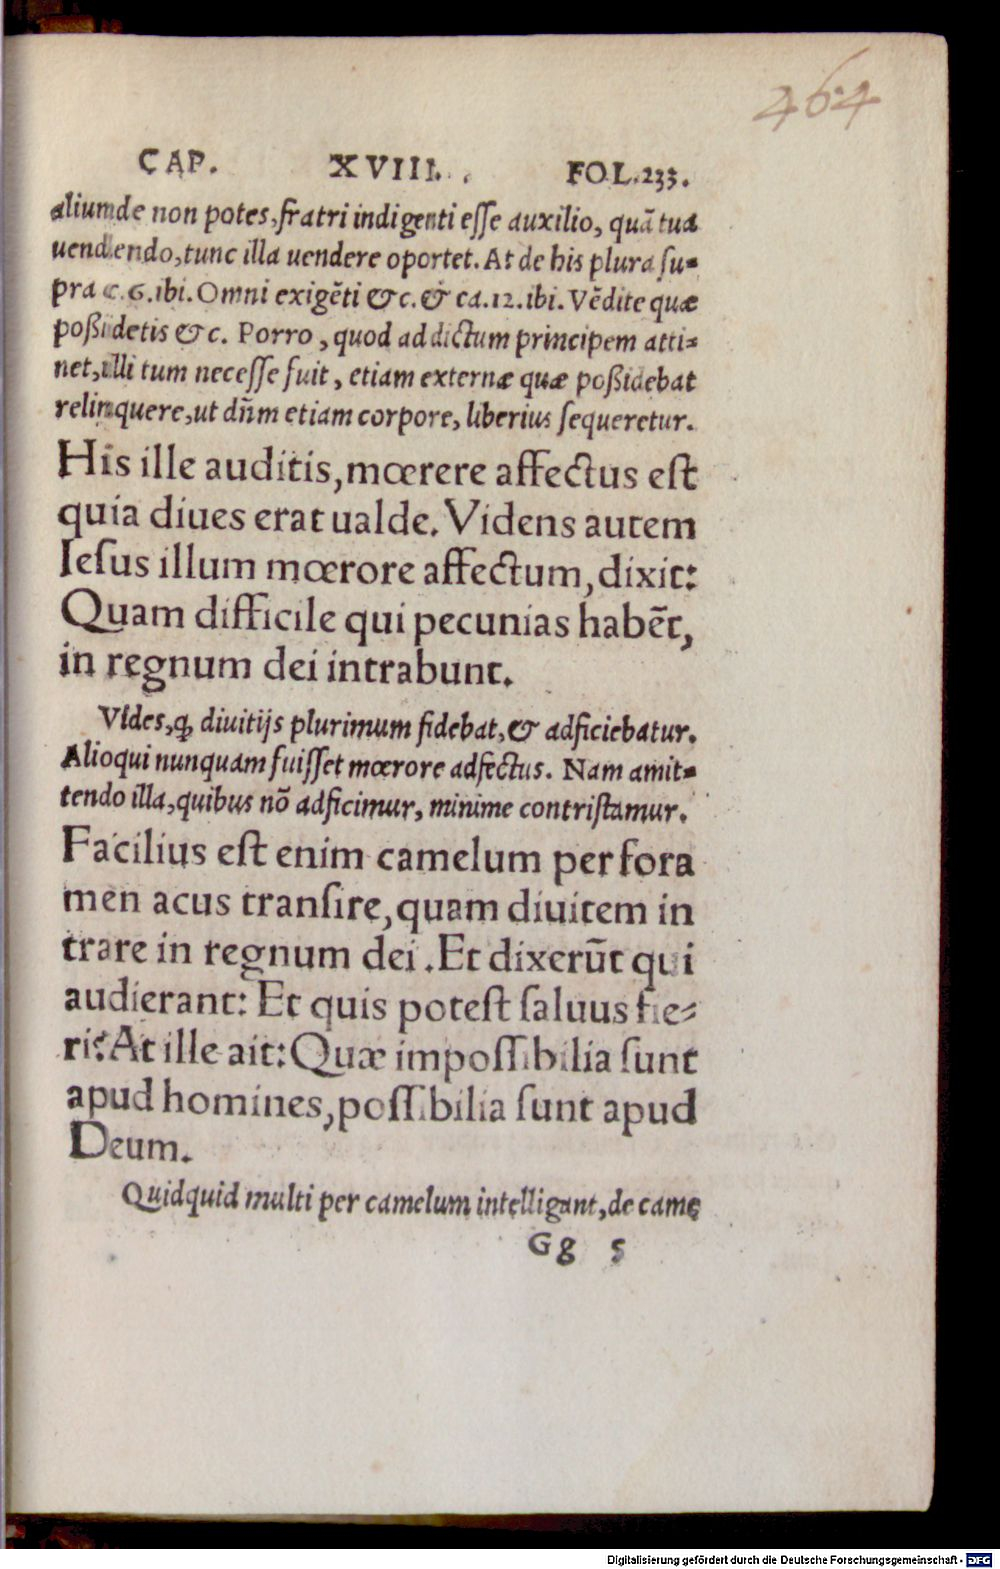 464
CAP. XVIII. FOL.233.
aliunde non potes, fratri indigenti esse auxilio, quā tua
uendendo, tunc illa uendere oportet. At de his plura su-
pra c. 6. ibi. Omni exigēti &c. & ca. 12. ibi. Vēdite quæ
poßidetis &c. Porro, quod ad dictum principem atti-
net, illi tum necesse fuit, etiam externæ quæ poßidebat
relinquere, ut dñm etiam corpore, liberius sequeretur.
His ille auditis, mœrere affectus est
quia diues erat ualde. Videns autem
Iesus illum mœrore affectum, dixit:
Quam difficile qui pecunias habēt,
in regnum dei intrabunt.
Vides, ꝙ diuitijs plurimum fidebat, & adficiebatur.
Alioqui nunquam fuisset mœrore adfectus. Nam amit-
tendo illa, quibus nō adficimur, minime contristamur.
Facilius est enim camelum per fora
men acus transire, quam diuitem in
trare in regnum dei. Et dixerūt qui
audierant: Et quis potest saluus fie-
ri? At ille ait: Quæ impossibilia sunt
apud homines, possibilia sunt apud
Deum.
Quidquid multi per camelum intelligant, de came
Gg 5
Digitalisierung gefördert durch die Deutsche Forschungsgemeinschaft - DFG